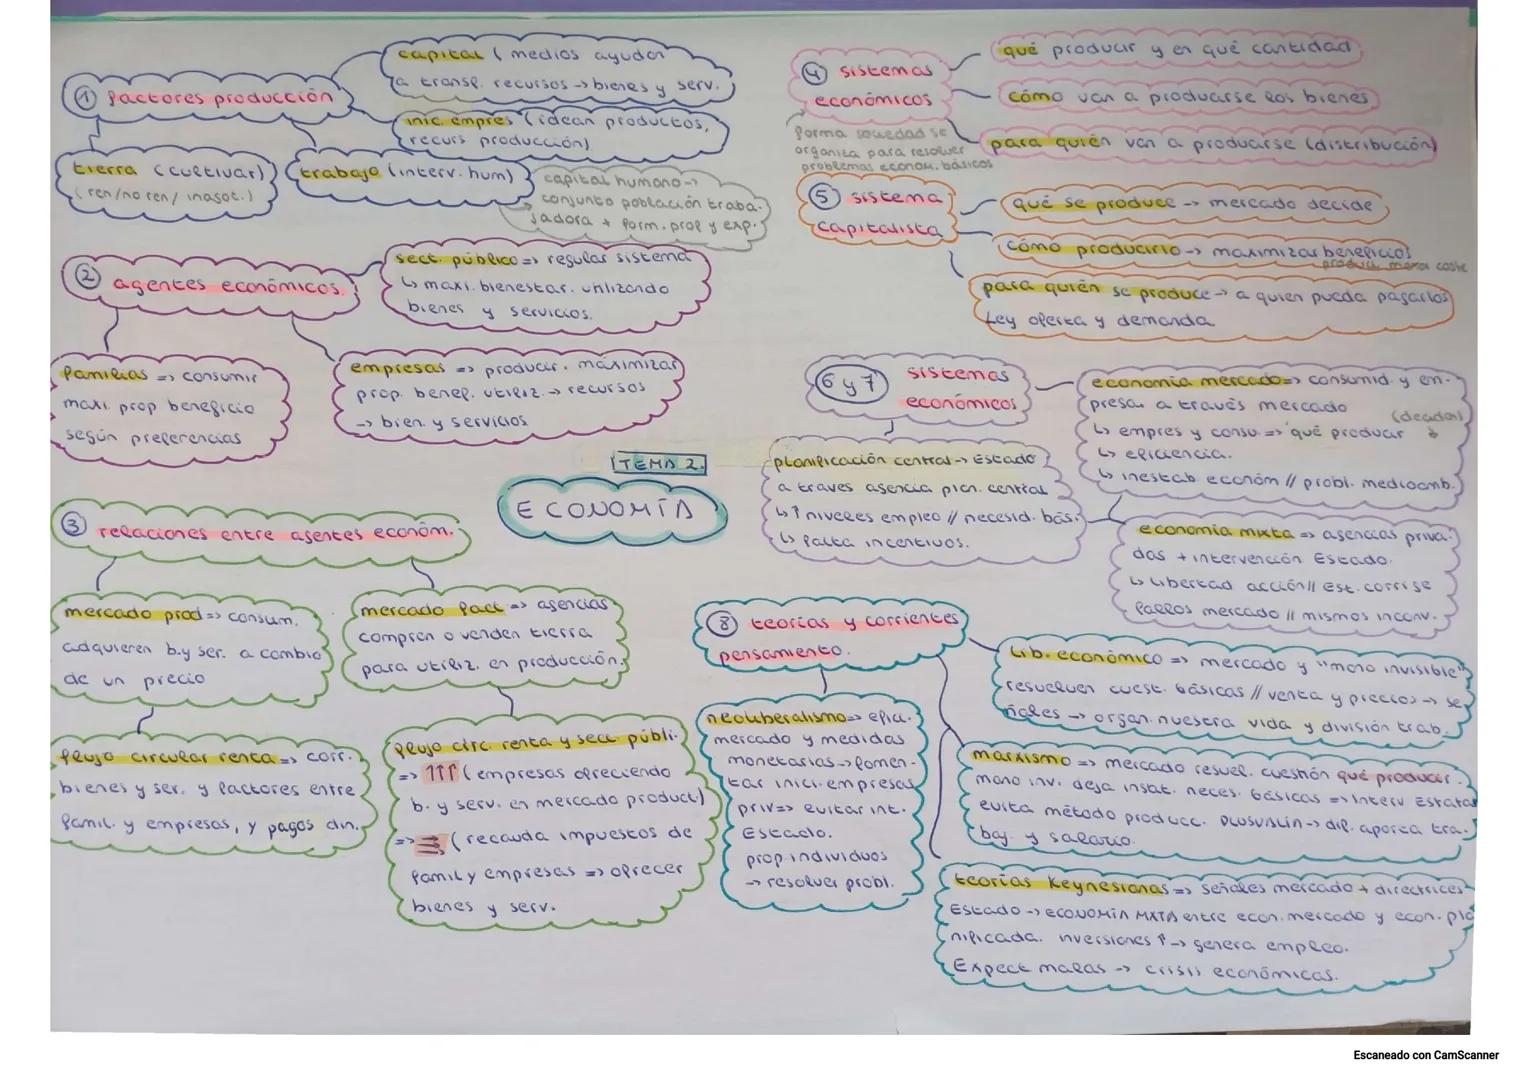 ① factores producción
capital (medios ayudan
a transf. recursos → bienes y serv.
inic. empres (idean productos,
recurs producción)
tierra (cultivar)
(ren/no ren/ inagot.)
trabajo (interv. hum)
capital humano →
conjunto población traba-
jadora + form. prof y exp.
② agentes económicos.
sect. público => regular sistema
↳ maxi. bienestar. utilizando
bienes y servicios.
familias => consumir
maxi. prop beneficio
según preferencias
empresas => producir. máximizar
prop. benef. utiliz. → recursos
→ bien. y servicios
TEMA 2.
ECONOMÍA
③ relaciones entre agentes económ.
mercado prod => consum.
adquieren b. y ser. a cambio
de un precio
mercado fact => agencias
compran o venden tierra
para utiliz. en producción.
flujo circular renta => corr.
bienes y ser. y factores entre
famil. y empresas, y pagos din.
flujo circ. renta y sect. públi.
=> ↑↑↑ (empresas ofreciendo
b. y serv. en mercado product)
=> (recauda impuestos de
famil y empresas => ofrecer
bienes y serv.
④ sistemas
económicos
forma sociedad se
organiza para resolver
problemas econom. básicos
qué producir y en qué cantidad
cómo van a producirse los bienes
para quién van a producirse (distribución)
⑤ sistema
capitalista
qué se produce → mercado decide
cómo producirlo → maximizar beneficios
producir menor coste
para quién se produce → a quien pueda pagarlos
Ley oferta y demanda
6 y 7 sistemas
económicos
economía mercado => consumid. y em-
presa. a través mercado
(deciden)
↳ empres y consu => qué producir
↳ eficiencia.
↳ inestab económ // probl. medioamb.
planificación central → Estado
a traves agencia plan. central
↳ ↑ niveles empleo // necesid. bás.
↳ falta incentivos.
economía mixta => agencias priva-
das + intervención Estado.
↳ libertad acción // Est. corrige
fallos mercado // mismos inconv.
⑧ teorías y corrientes
pensamiento.
neoliberalismo => efic.
mercado y medidas
monetarias → fomen-
tar inici. empresas
priv => evitar int.
Estado.
prop. individuos
→ resolver probl.
Lib. económico => mercado y "mano invisible"
resuelven cuest. básicas // venta y precios → se
ñales → organ. nuestra vida y división trab.
marxismo => mercado resuel. cuestión qué producir.
mano inv. deja insat. neces. básicas => interv Estatal
evita método producc. PLUSVALÍA → dif. aporta tra-
baj. y salario.
teorías keynesianas => señales mercado + directrices
Estado → ECONOMÍA MIXTA entre econ. mercado y econ. pla
nificada. inversiones ↑ → genera empleo.
Expect malas → crisis económicas.
Escaneado con CamScanner